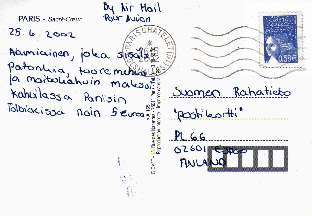 By Air Mail
Par Avion
PARIS - Sacré-Cœur
25.6.2002
Aamiainen, joka sisälsi
patonkia, tuoremehua
ja maitokahvin maksoi
kahvilassa Pariisin
Tolbiacissa noin 5 euroa
0,50€
Suomen Rahatieto
"postikortti"
PL 66
02601 Espoo
FINLAND